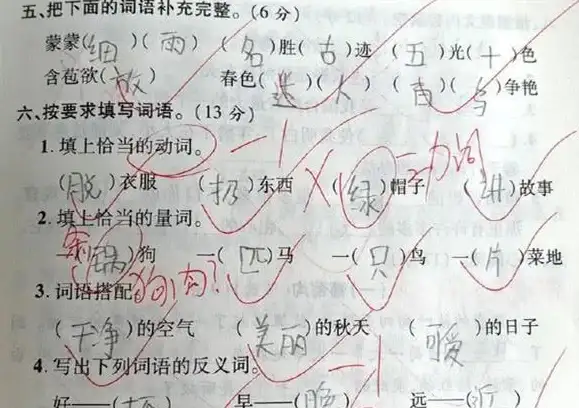 五、把下面的词语补充完整。(6分)
蒙蒙(细)(雨) (名)胜(古)迹 (五)光(十)色
含苞欲(放) 春色(迷)(人) (百)( )争艳
六、按要求填写词语。(13分)
1. 填上恰当的动词。 -1 动词
(脱)衣服 (扔)东西 (绿)帽子 (讲)故事
2. 填上恰当的量词。
一(锅)狗 一(匹)马 一(只)鸟 一(片)菜地
3. 词语搭配 狗肉?
(干净)的空气 美丽)的秋天 ( )的日子
4. 写出下列词语的反义词。 -1
好——(坏) 早——(晚) 远——(近)